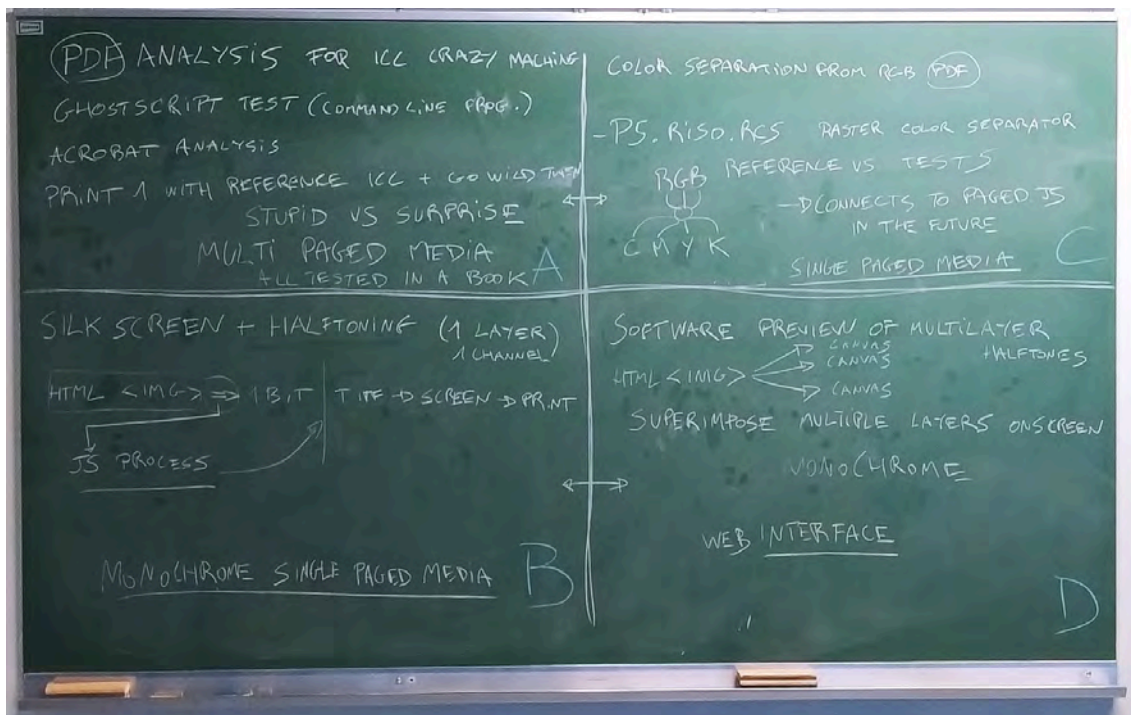 PDF ANALYSIS FOR ICC CRAZY MACHINE
GHOSTSCRIPT TEST (COMMAND LINE PROG.)
ACROBAT ANALYSIS
PRINT 1 WITH REFERENCE ICC + GO WILD THEN
STUPID VS SURPRISE
MULTI PAGED MEDIA
ALL TESTED IN A BOOK
A
COLOR SEPARATION FROM RGB PDF
- P5.RISO.RCS RASTER COLOR SEPARATOR
REFERENCE VS TESTS
RGB
C M Y K
CONNECTS TO PAGED.JS
IN THE FUTURE
SINGLE PAGED MEDIA
C
SILK SCREEN + HALFTONING (1 LAYER)
1 CHANNEL)
HTML <IMG> ⇒ 1 BIT | TIFF → SCREEN → PRINT
JS PROCESS
MONOCHROME SINGLE PAGED MEDIA
B
SOFTWARE PREVIEW OF MULTILAYER
HALFTONES
HTML <IMG>
CANVAS
CANVAS
CANVAS
SUPERIMPOSE MULTIPLE LAYERS ONSCREEN
MONOCHROME
WEB INTERFACE
D